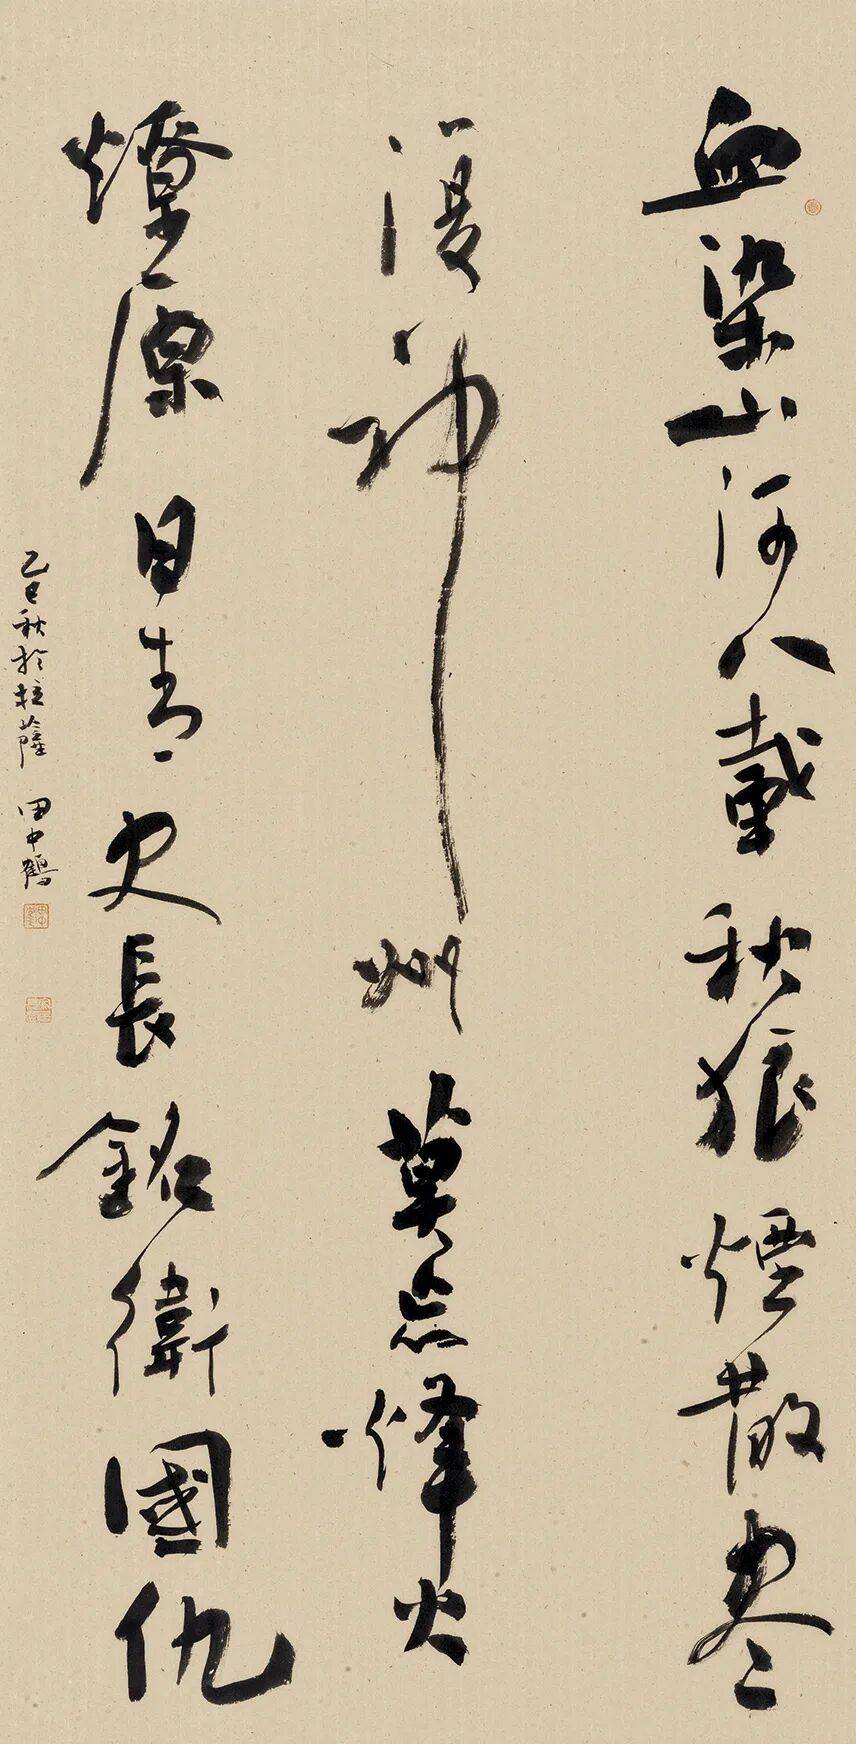 血染山河八載秋狼煙散盡
復神州莫忘烽火
燎原日青史長銘衛國仇
乙巳秋於拉薩 田中鶴